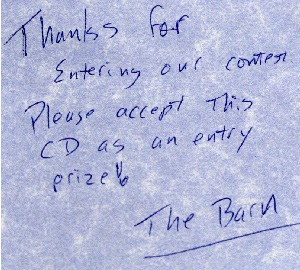 Thanks for
Entering our contest
Please accept This
CD as an entry
prize!
The Barn